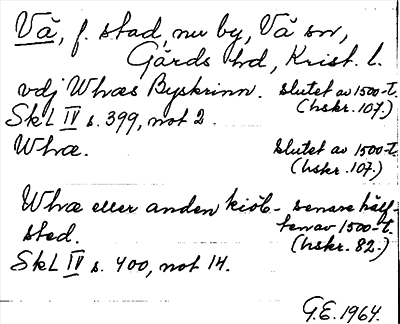 Vä, f. stad, nu by, Vä sn,
Gärds hd, Krist. l.
vdj Whæs Byskrinn. slutet av 1500-t.
(hskr. 107.)
SkL IV s. 399, not 2.
Whæ. slutet av 1500-t.
(hskr. 107.)
Whæ eller anden kiöb- senare hälf-
sted. ten av 1500-t.
(hskr. 82.)
SkL IV s. 400, not 14.
G.E. 1964.